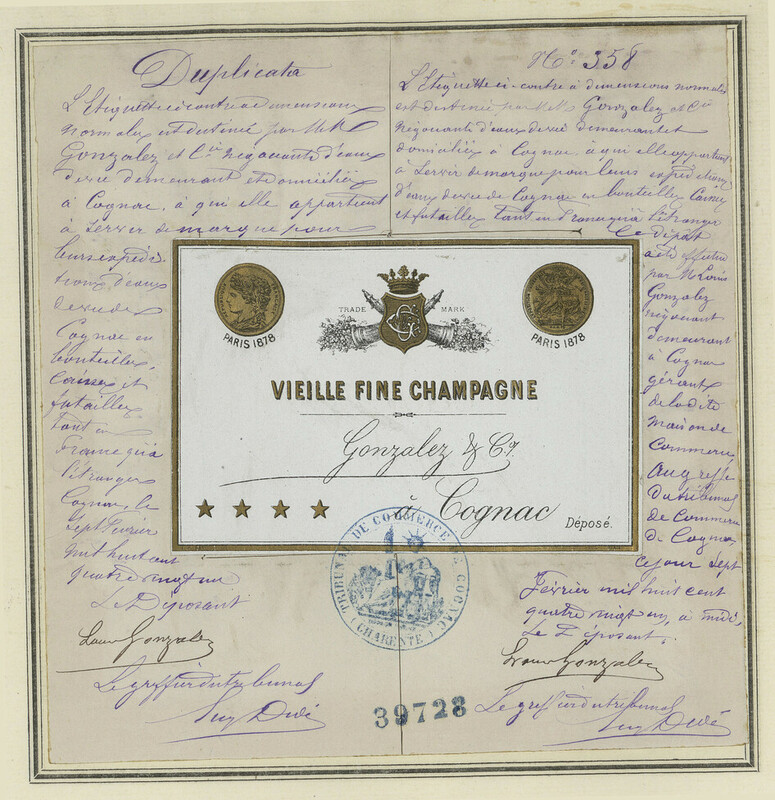 Duplicata
L'Etiquette ci contre a dimensions
normales est destinée par M.M.
Gonzalez et Cie négociants d'eaux
de vie demeurant et domiciliés
à Cognac, à qui elle appartient
à servir de marque pour
leurs expédi-
tions d'eaux
de vie de
Cognac en
bouteilles,
caisses et
futailles
tant en
France qu'à
l'étranger
Cognac, le
Sept Février
mil huit cent
quatre vingt un
Le Déposant
Louis Gonzalez
Le greffier du tribunal
N° 358
L'Etiquette ci-contre à dimensions normales
est destinée par M.M. Gonzalez et Cie
négociants d'eaux de vie demeurant et
domiciliés à Cognac à qui elle appartient
à servir de marque pour leurs expéditions
d'eaux de vie de Cognac en bouteilles, caisses
et futailles tant en France qu'à l'étranger
Ce dépôt
a été effectué
par M. Louis
Gonzalez
négociant
demeurant
à Cognac
gérant
de la dite
maison de
commerce,
au greffe
du tribunal
de Commerce
de Cognac
ce jour Sept
Février mil huit cent
quatre vingt un, à midi,
Le Déposant.
Louis Gonzalez
Le greffier du tribunal
PARIS 1878
TRADE MARK
PARIS 1878
VIEILLE FINE CHAMPAGNE
Gonzalez & Co.
à Cognac
Déposé.
TRIBUNAL DE COMMERCE DE COGNAC
(CHARENTE)
39728